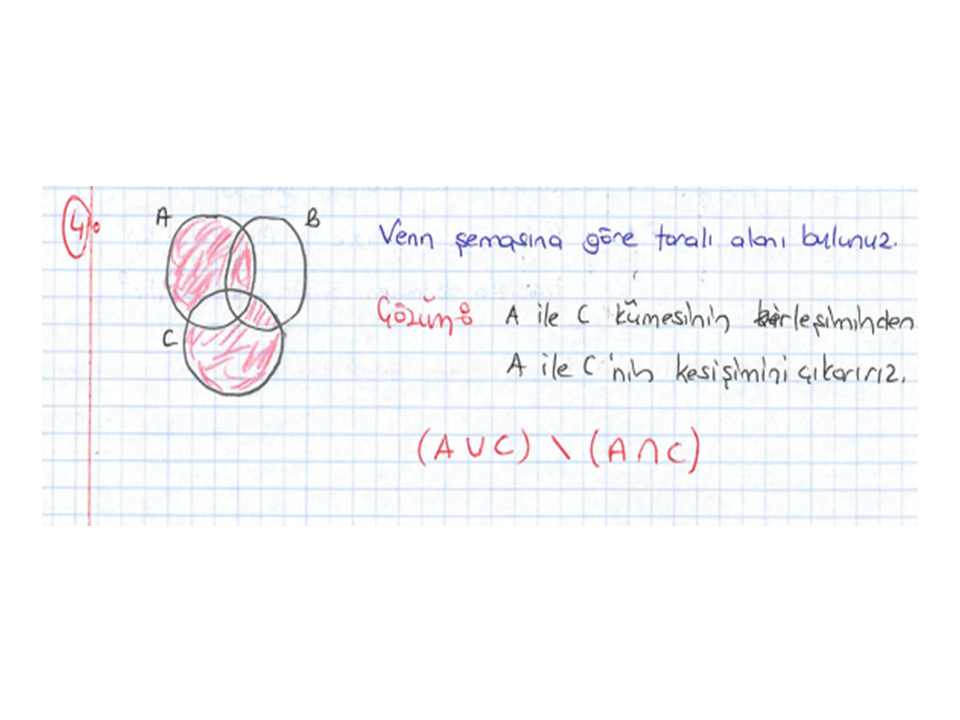 4.
A
B
Venn şemasına göre taralı alanı bulunuz.
Çözüm: A ile C kümesinin birleşiminden
C
A ile C'nin kesişimini çıkarırız.
(A ∪ C) \ (A ∩ C)